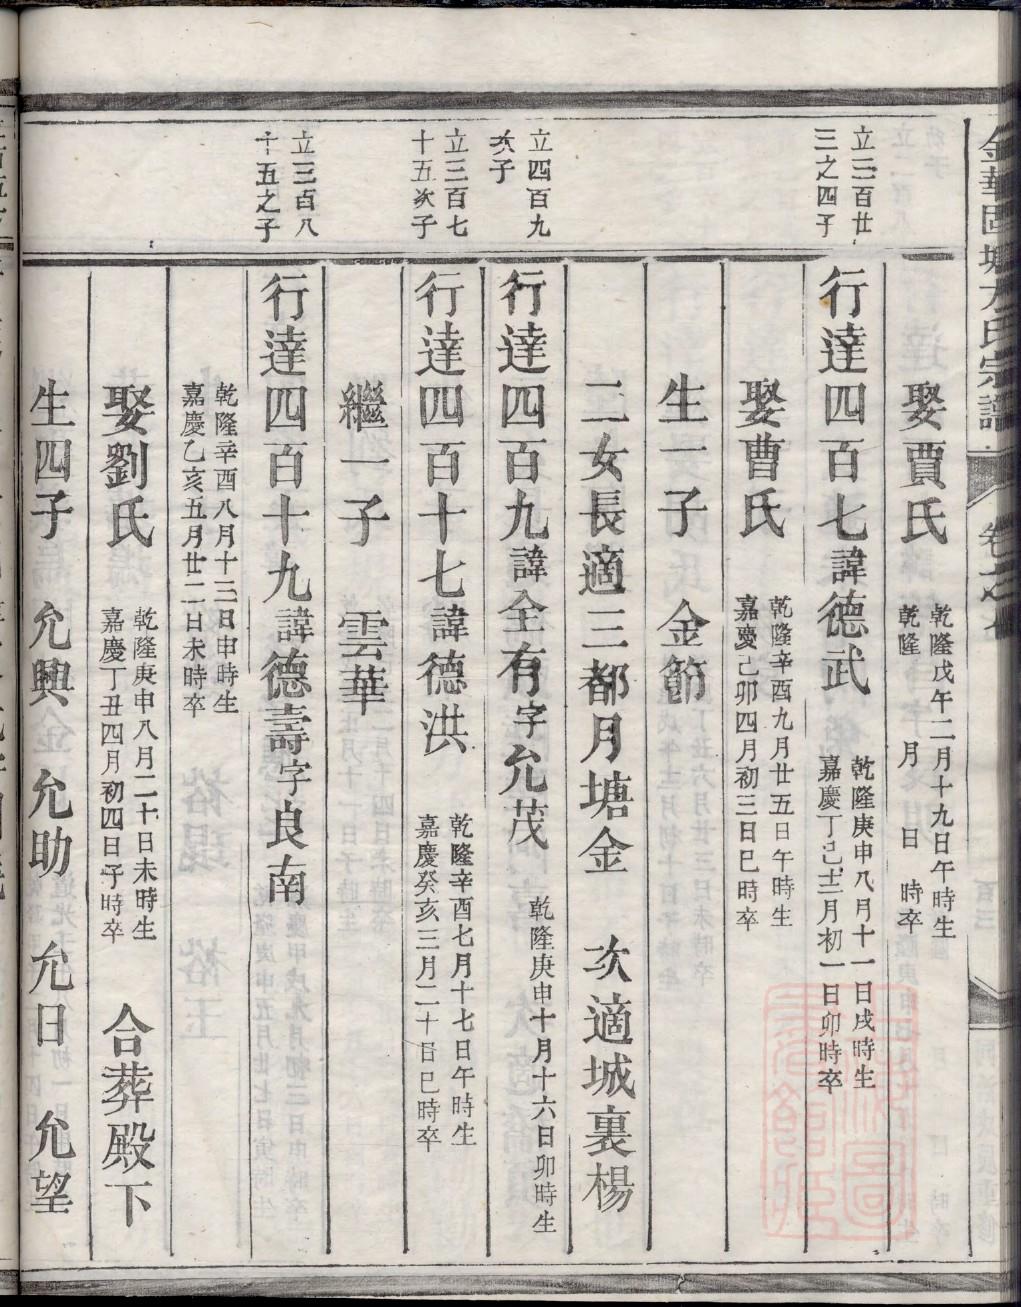 金華固塘方氏宗譜
卷之七
娶賈氏
乾隆戊午二月十九日午時生
乾隆 月 日 時卒
立三百廿
三之四子
行達四百七諱德武
乾隆庚申八月十一日戌時生
嘉慶丁巳十二月初一日卯時卒
娶曹氏
乾隆辛酉九月廿五日午時生
嘉慶己卯四月初三日巳時卒
生一子 金節
二女長適三都月塘金 次適城裏楊
立四百九
次子
行達四百九諱全有字允茂
乾隆庚申十月十六日卯時生
立三百七
十五次子
行達四百十七諱德洪
乾隆辛酉七月十七日午時生
嘉慶癸亥三月二十日巳時卒
繼一子 雲華
立三百八
十五之子
行達四百十九諱德壽字良南
乾隆辛酉八月十三日申時生
嘉慶乙亥五月廿二日未時卒
娶劉氏
乾隆庚申八月二十日未時生
嘉慶丁丑四月初四日子時卒
合葬殿下
生四子 允興 允助 允日 允望